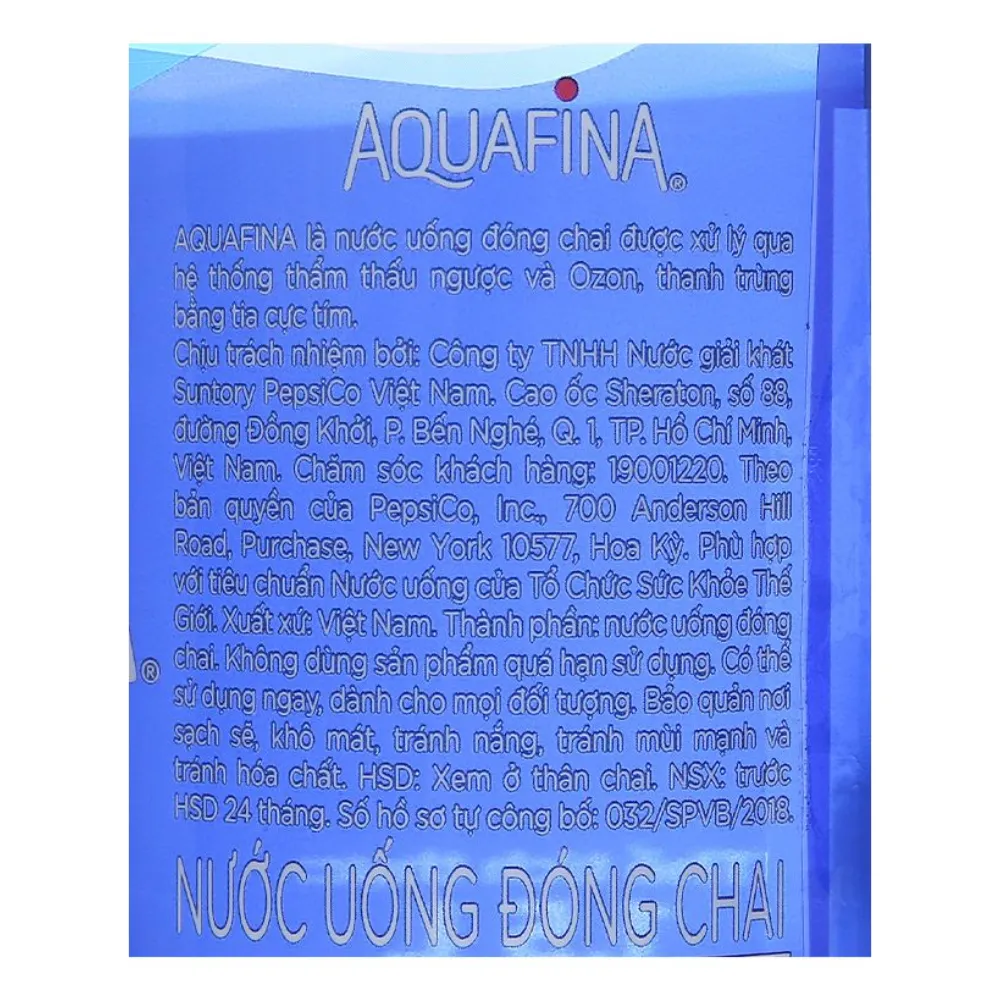 AQUAFINA®
AQUAFINA là nước uống đóng chai được xử lý qua
hệ thống thẩm thấu ngược và Ozon, thanh trùng
bằng tia cực tím.
Chịu trách nhiệm bởi: Công ty TNHH Nước giải khát
Suntory PepsiCo Việt Nam. Cao ốc Sheraton, số 88,
đường Đồng Khởi, P. Bến Nghé, Q. 1, TP. Hồ Chí Minh,
Việt Nam. Chăm sóc khách hàng: 19001220. Theo
bản quyền của PepsiCo, Inc., 700 Anderson Hill
Road, Purchase, New York 10577, Hoa Kỳ. Phù hợp
với tiêu chuẩn Nước uống của Tổ Chức Sức Khỏe Thế
Giới. Xuất xứ: Việt Nam. Thành phần: nước uống đóng
chai. Không dùng sản phẩm quá hạn sử dụng. Có thể
sử dụng ngay, dành cho mọi đối tượng. Bảo quản nơi
sạch sẽ, khô mát, tránh nắng, tránh mùi mạnh và
tránh hóa chất. HSD: Xem ở thân chai. NSX: trước
HSD 24 tháng. Số hồ sơ tự công bố: 032/SPVB/2018.
NƯỚC UỐNG ĐÓNG CHAI